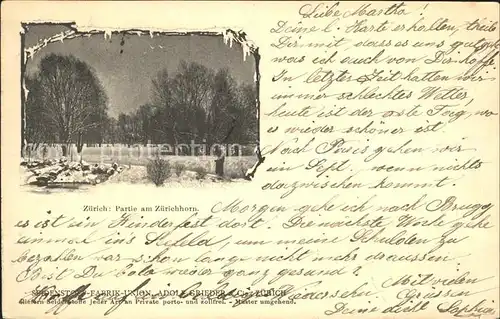 Liebe Martha!
Deine l. Karte erhalten, theile
Dir mit, dass es uns gut geht
was ich auch von Dir hoffe
In letzter Zeit hatten wir
immer schlechtes Wetter,
heute ist der erste Tag, wo
es wieder schöner ist.
Nach Paris gehen wir
im Sept. wenn nichts
dazwischen kommt.
Zürich: Partie am Zürichhorn.
Morgen gehe ich nach Brugg
es ist ein Kinderfest dort. Die nächste Woche gehe
einmal in's um meine Schulden zu
bezahlen war schon lange nicht mehr draussen
Bist Du wieder ganz gesund?
SEIDENSTOFF-FABRIK-UNION, ADOLF GRIEDER & Cie, ZÜRICH
Mit vielen
Hoffe auf ein Grüssen
liefern Seidenstoffe jeder Art an Private porto- und zollfrei. — Muster umgehend.
Deine dich